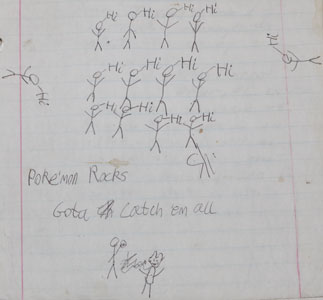 Hi Hi Hi Hi
Hi
Hi Hi Hi Hi
Hi
Hi Hi Hi Hi
Poke'mon Rocks
Gota Catch 'em all